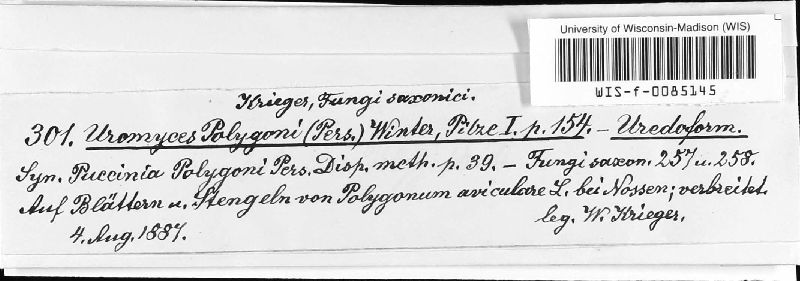 University of Wisconsin-Madison (WIS)
WIS-f-0085145
Krieger, Fungi saxonici.
301. Uromyces Polygoni (Pers.) Winter, Pilze I. p. 154. – Uredoform.
Syn. Puccinia Polygoni Pers. Disp. meth. p. 39. – Fungi saxon. 257 u. 258.
Auf Blättern u. Stengeln von Polygonum aviculare L. bei Nossen; verbreitet.
4. Aug. 1887. leg. W. Krieger.